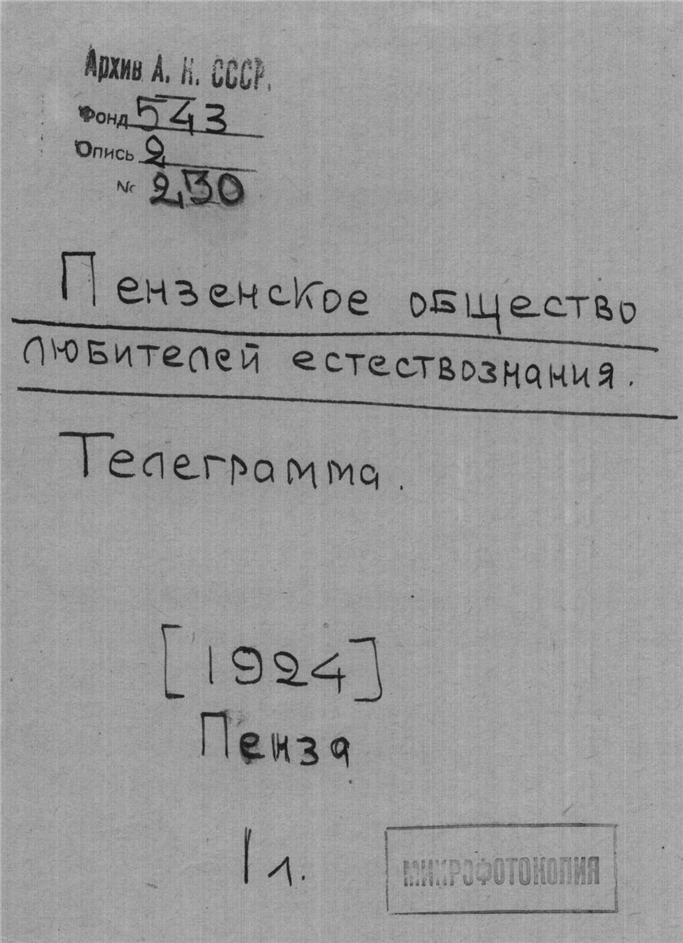 Архив А. Н. СССР.
Фонд 543
Опись 2
№ 230
Пензенское общество
любителей естествознания.
Телеграмма.
[1924]
Пенза
1 л.
МИКРОФОТОКОПИЯ